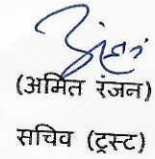 (अमित रंजन)
सचिव (ट्रस्ट)